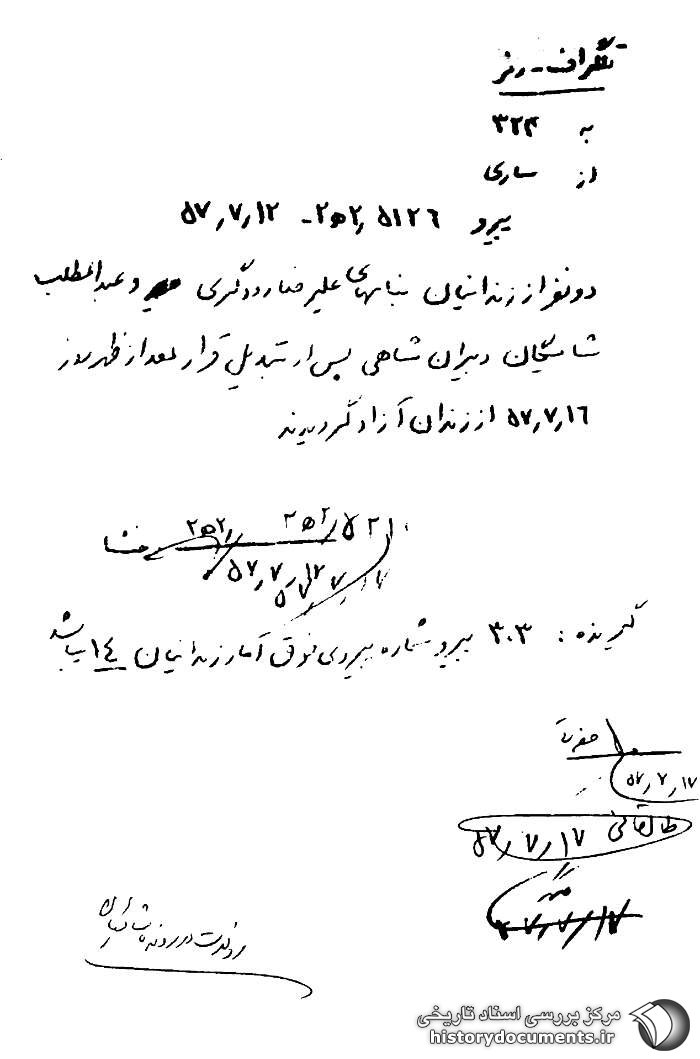 تلگراف - رمز
به ۳۲۴
از ساری
پیرو ۵۱۲۶ر۲ﻫ۲ - ۵۷ر۷ر۱۲
دو نفر از زندانیان بنامهای علیرضا رودگری و عبدالمطلب
شاملیکان دبیران شاهی پس از تبدیل قرار بعد از ظهر روز
۵۷ر۷ر۱۶ از زندان آزاد گردیدند
۲ﻫ۲
۲ﻫ۲
۵۷ر۷ر۱۲
گیرنده : ۳۰۳ پیرو شماره پیروی فوق آمار زندانیان ۱۴ میباشد
۵۷ر۷ر۱۷
طالقانی ۵۷ر۷ر۱۷
۵۷ر۷ر۱۷
مرکز بررسی اسناد تاریخی
historydocuments.ir